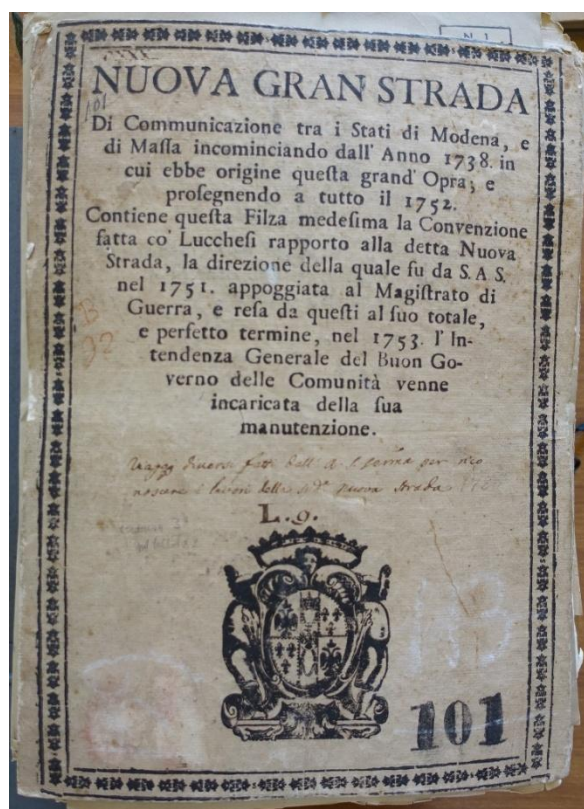 N. 1
101
NUOVA GRAN STRADA
Di Communicazione tra i Stati di Modena, e
di Maſſa incominciando dall' Anno 1738. in
cui ebbe origine queſta grand' Opra; e
proſegnendo a tutto il 1752.
Contiene queſta Filza medeſima la Convenzione
fatta co' Luccheſi rapporto alla detta Nuova
Strada, la direzione della quale fu da S. A. S.
nel 1751. appoggiata al Magiſtrato di
Guerra, e reſa da queſti al ſuo totale,
e perfetto termine, nel 1753. l' In-
tendenza Generale del Buon Go-
verno delle Comunità venne
incaricata della ſua
manutenzione.
B
92
Viaggi diversi fatti dall' A. S. per rico
noscere i lavori della nuova strada
L. 9.
103
101